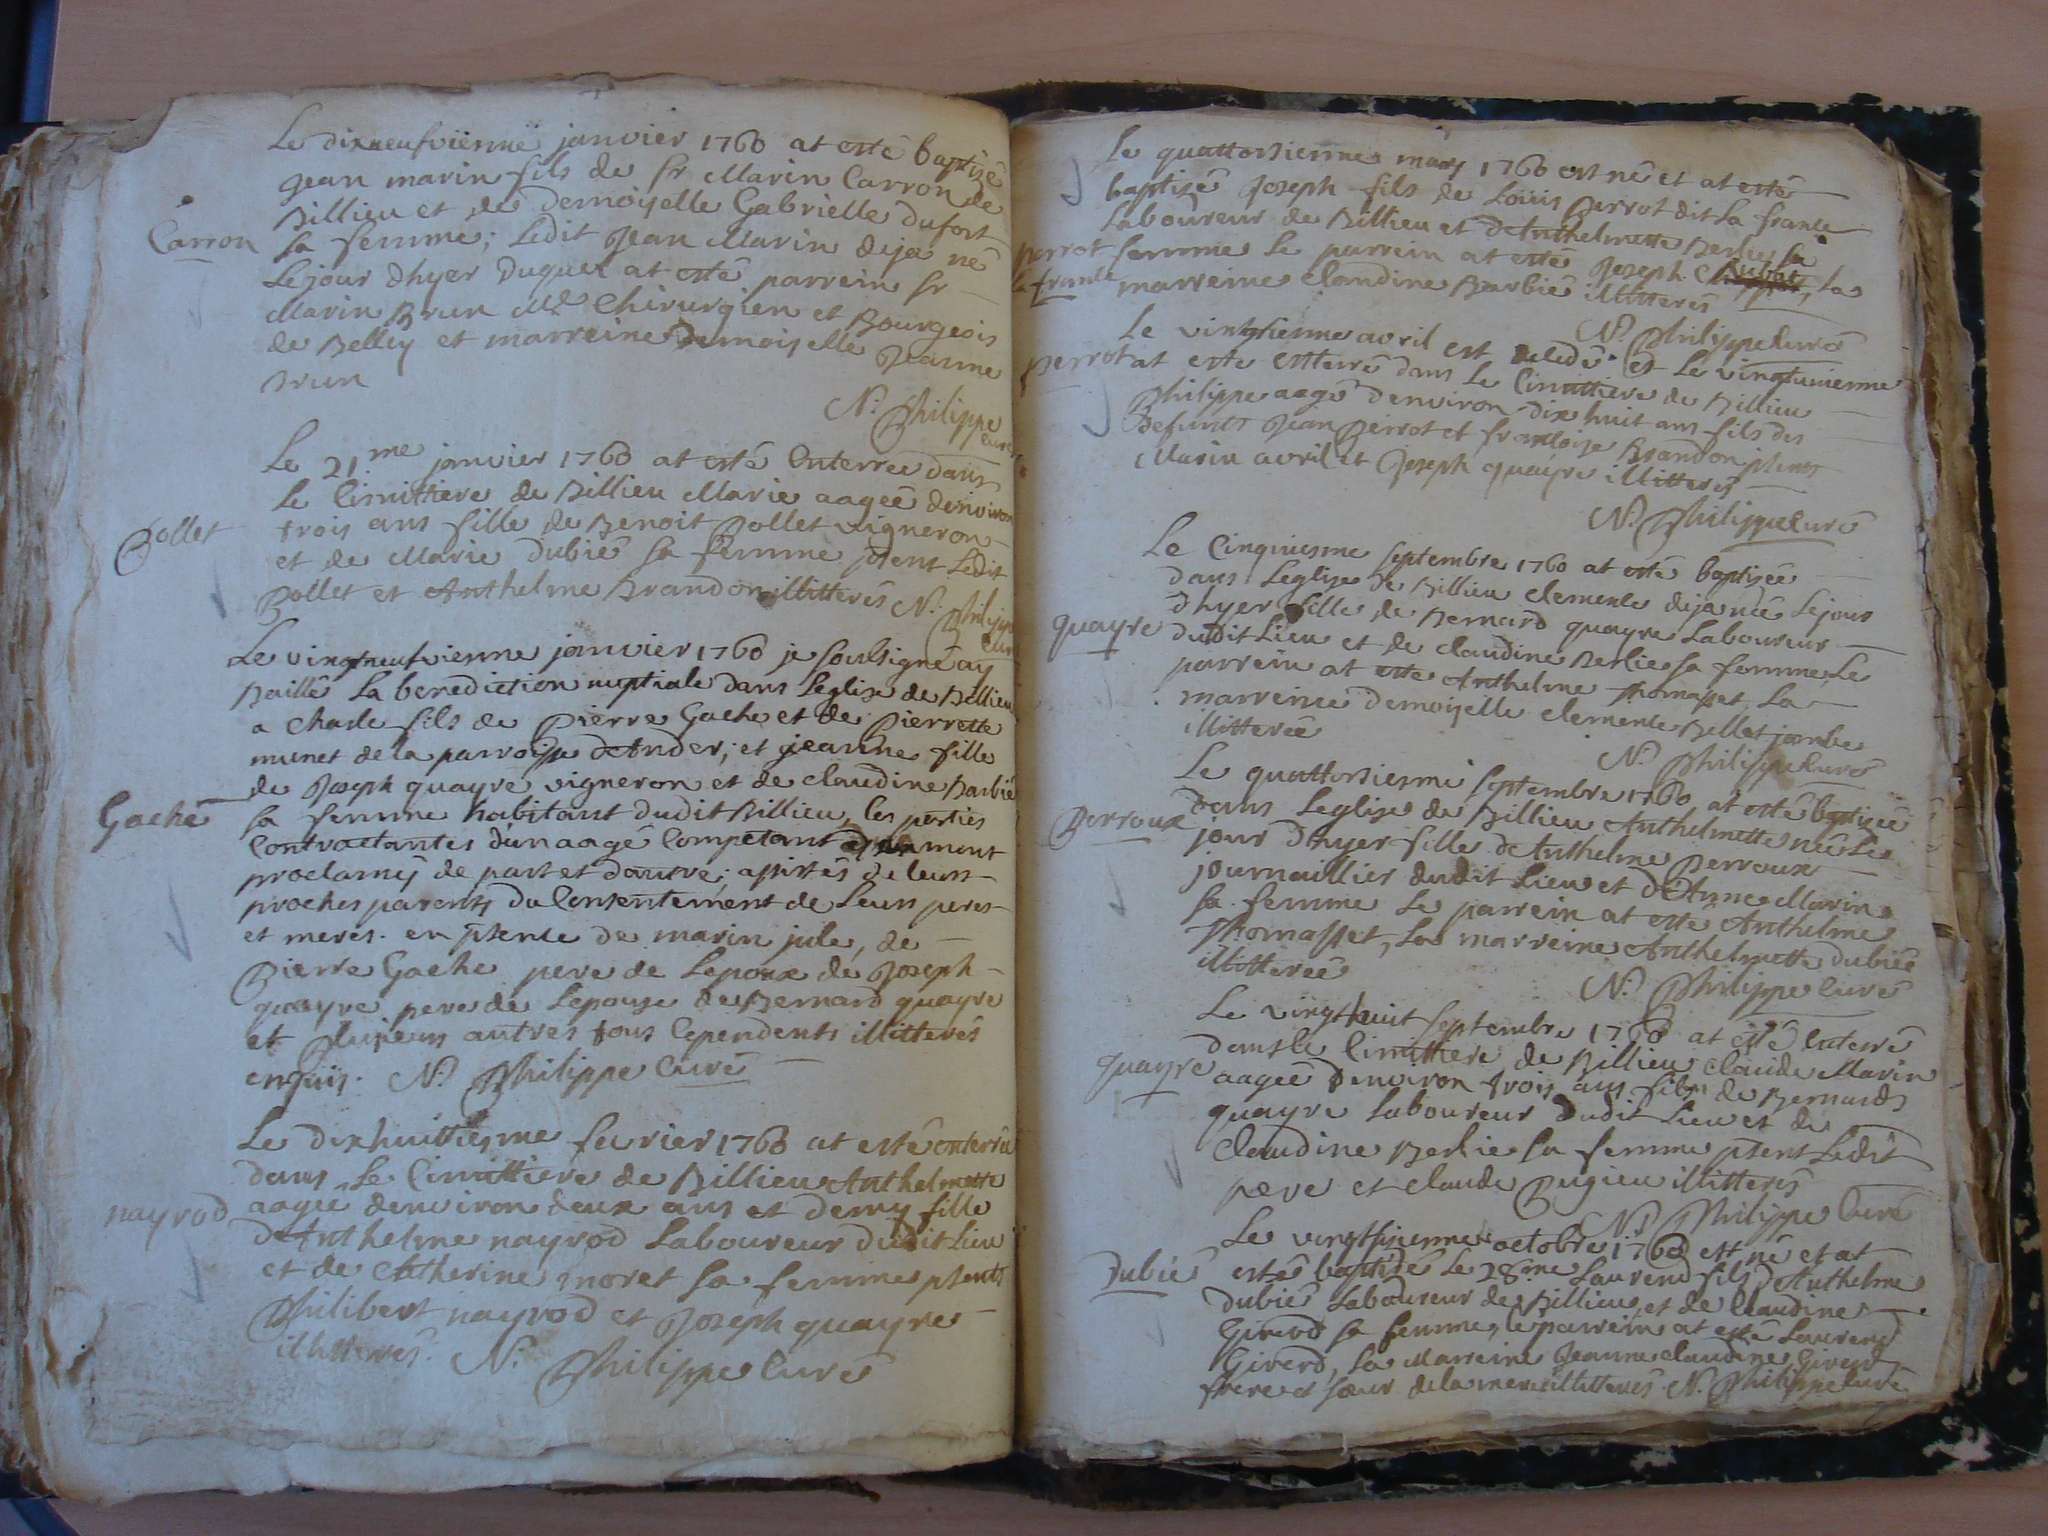 Le dixneufvienme janvier 1760 at esté baptizé
jean marin fils de sr Marin Carron de
Billieu et de Demoiselle Gabrielle Dufort
Carron
sa femme; Ledit Jean Marin deja né
Le jour dhyer duquel at esté parrein sr
Marin Brun Me Chirurgien et Bourgeois
de Belley et marreine Demoiselle Jeanne
Brun
N. Philippe curé
Le 21.me janvier 1760 at esté Enterrée dans
Le Cimittiere de Billieu Marie aagée denviron
Bollet
trois ans fille de Benoit Bollet vigneron
et de Marie Dubié sa femme pñent Ledit
Bollet et Anthelme Brandon illitterés N. Philippe
curé
Le vingtneufvienme janvier 1760 je soubsigné ay
Baillé La benediction nuptiale dans Leglise de Billieu
a Charle fils de Pierre Gache et de Pierrette
munet de la parroisse dAnder; et jeanne fille
de Joseph quayre vigneron et de claudine Barbié
Gache
sa femme habitant dudit Billieu, les parties
Contractantes d'un aage Competant
proclamés de part et dautre; assistés de leurs
proches parents du Consentement de Leurs peres
et meres. en pñence de marin jule, de
Pierre Gache pere de Lepoux de Joseph
quayre pere de Lepouse de Bernard quayre
et plusieurs autres tous Cependents illitterés
enquis. N. Philippe Curé
Le dixhuittiesme fevrier 1760 at esté enterrée
dans Le Cimittiere de Billieu Anthelmette
nayrod
aagée denviron deux ans et demy fille
dAnthelme nayrod Laboureur dudit Lieu
et de Catherine moret sa femme pñents
Philibert nayrod et Joseph quayre
illitterés. N. Philippe Curé
Le quattorsienme mars 1760 est né et at esté
baptizé Joseph fils de Louis Perrot dit La france
Laboureur de Billieu et dAnthelmette Berlie sa
perrot
la france
femme Le parrein at esté Joseph la
marreine Claudine Barbié illitterés
N. Philippe Curé
Le vingtienme avril est decedé et Le vingtunienme
perrot
at esté Enterré dans Le Cimittiere de Billieu
Philippe aagé denviron dix huit ans fils des
Defunts Jean Perrot et françoise Brandon pñents
Marin avril et Joseph quayre illitterés
N. Philippe Curé
Le Cinquiesme septembre 1760 at esté baptizée
dans Leglise de Billieu clemence deja née Le jour
dhyer fille de Bernard quayre Laboureur
quayre
dudit Lieu et de claudine Berlie sa femme, Le
parrein at esté Anthelme Thomasset, La
marreine demoiselle clemence Bellet jambe
illitterée
N. Philippe Curé
Le quattorsiesme septembre 1760 at esté baptizée
Perroux
dans Leglise de Billieu Anthelmette née Le
jour dhyer fille dAnthelme Perroux
journaillier dudit Lieu et dEtiennette Marin
sa femme Le parrein at esté Anthelme
Thomasset, La marreine Anthelmette Dubiée
illitterée
N. Philippe Curé
Le vingthuit septembre 1760 at esté Enterré
dans le Cimittiere de Billieu Claude Marin
quayre
aagée denviron trois ans fils de Bernard
quayre Laboureur dudit Lieu et de
Claudine Berlie sa femme pñent Ledit
pere et claude Pugieu illitterés
N. Philippe Curé
Le vingtsixienme octobre 1760 est né et at
Dubié
esté baptizé Le 28me Laurend fils dAnthelme
Dubié Laboureur de Billieu et de Claudine
Girerd sa femme, le parrein at esté Laurend
Girerd, La Marreine Jeanne claudine Girerd
frere et sœur de la mere illitterés N. Philippe Curé